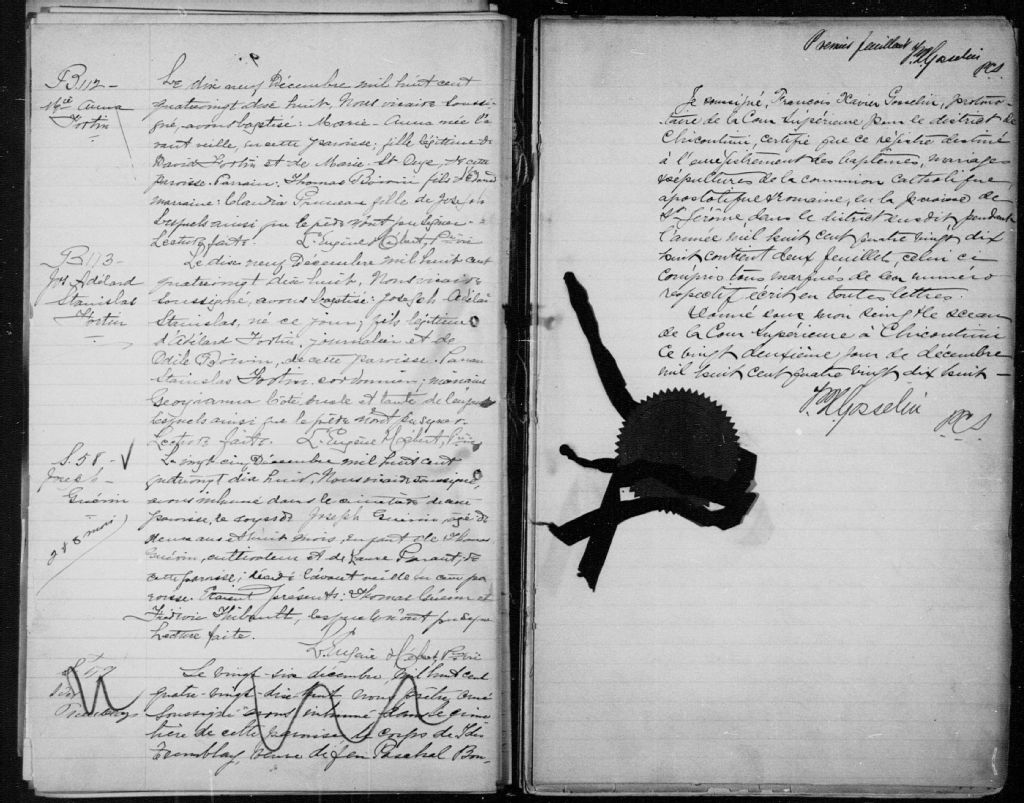 B 112 -
M^ie Anna
Fortin
Le dix neuf Décembre mil huit cent
quatrevingt dix huit, Nous vicaire soussi-
gné, avons baptisé: Marie-Anna née l'a-
vant veille, en cette paroisse; fille légitime de
David Fortin et de Marie St Onge, de cette
paroisse. Parrain: Thomas Boivin fils d'
marraine: Claudia fille de Joseph
Lesquels ainsi que le père n'ont pu signer -
Lecture faite. L. Eugène Hébert, Ptre
B 113 -
Jos Adélard
Stanislas
Fortin
Le dix neuf Décembre mil huit cent
quatrevingt dix huit, Nous vicaire
soussigné, avons baptisé: Joseph Adélard
Stanislas, né ce jour; fils légitime
d'Adélard Fortin, journalier et de
Odile Boivin, de cette paroisse. Parrain
Stanislas Fortin, cordonnier; marraine
Georgianna Côté, oncle et tante de l'enfant
lesquels ainsi que le père n'ont pu signer.
Lecture faite. L. Eugène Hébert, Ptre
S. 58 -
Joseph
Guérin
2 & 8 mois
Le vingt cinq Décembre mil huit cent
quatrevingt dix huit, Nous vicaire soussigné,
avons inhumé dans le cimetière de cette
paroisse, le corps de Joseph Guérin, agé de
deux ans et huit mois, enfant de Thomas
Guérin, cultivateur et de Laure Parant, de
cette paroisse; décédé l'avant veille en cette pa-
roisse. Etaient présents: Thomas Guérin et
Thibault, lesquels n'ont pu signer
Lecture faite.
L. Eugène Hébert Ptre
S 59
Tremblay
Le vingt-six décembre, mil huit cent
quatre-vingt-dix-huit nous prêtre, curé
soussigné avons inhumé dans le cime-
tière de cette paroisse le corps de
Tremblay, veuve de feu Paschal Bou-
Premier feuillet FX Gosselin
PCS
Je soussigné, François Xavier Gosselin, protono-
taire de la Cour Supérieure pour le district de
Chicoutimi, certifie que ce registre destiné
à l'enregistrement des baptêmes, mariages
& sépultures de la communion catholique,
apostolique & romaine, en la paroisse de
St Jérôme dans le district susdit pendant
l'année mil huit cent quatre vingt dix
huit contient deux feuillets, celui ci
compris tous marqués de leur numéro
respectif écrit en toutes lettres.
Donné sous mon seing & le sceau
de la Cour Supérieure à Chicoutimi
ce vingt deuxième jour de décembre
mil huit cent quatre vingt dix huit -
FX Gosselin
PCS